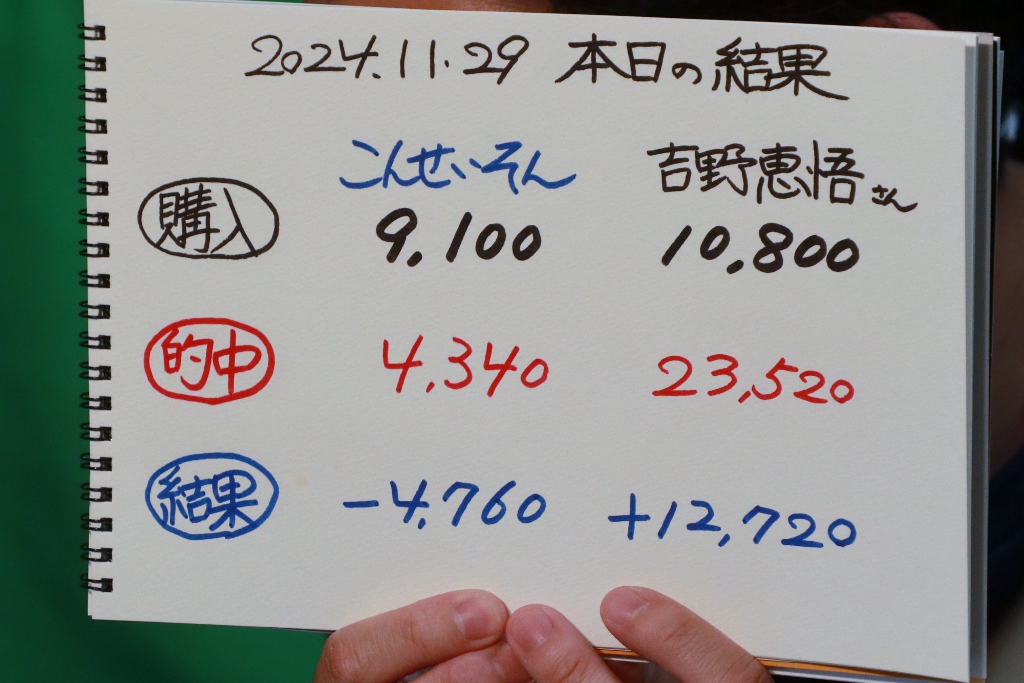 2024.11.29 本日の結果
こんせいそん 吉野恵悟さん
購入 9,100 10,800
的中 4,340 23,520
結果 -4,760 +12,720